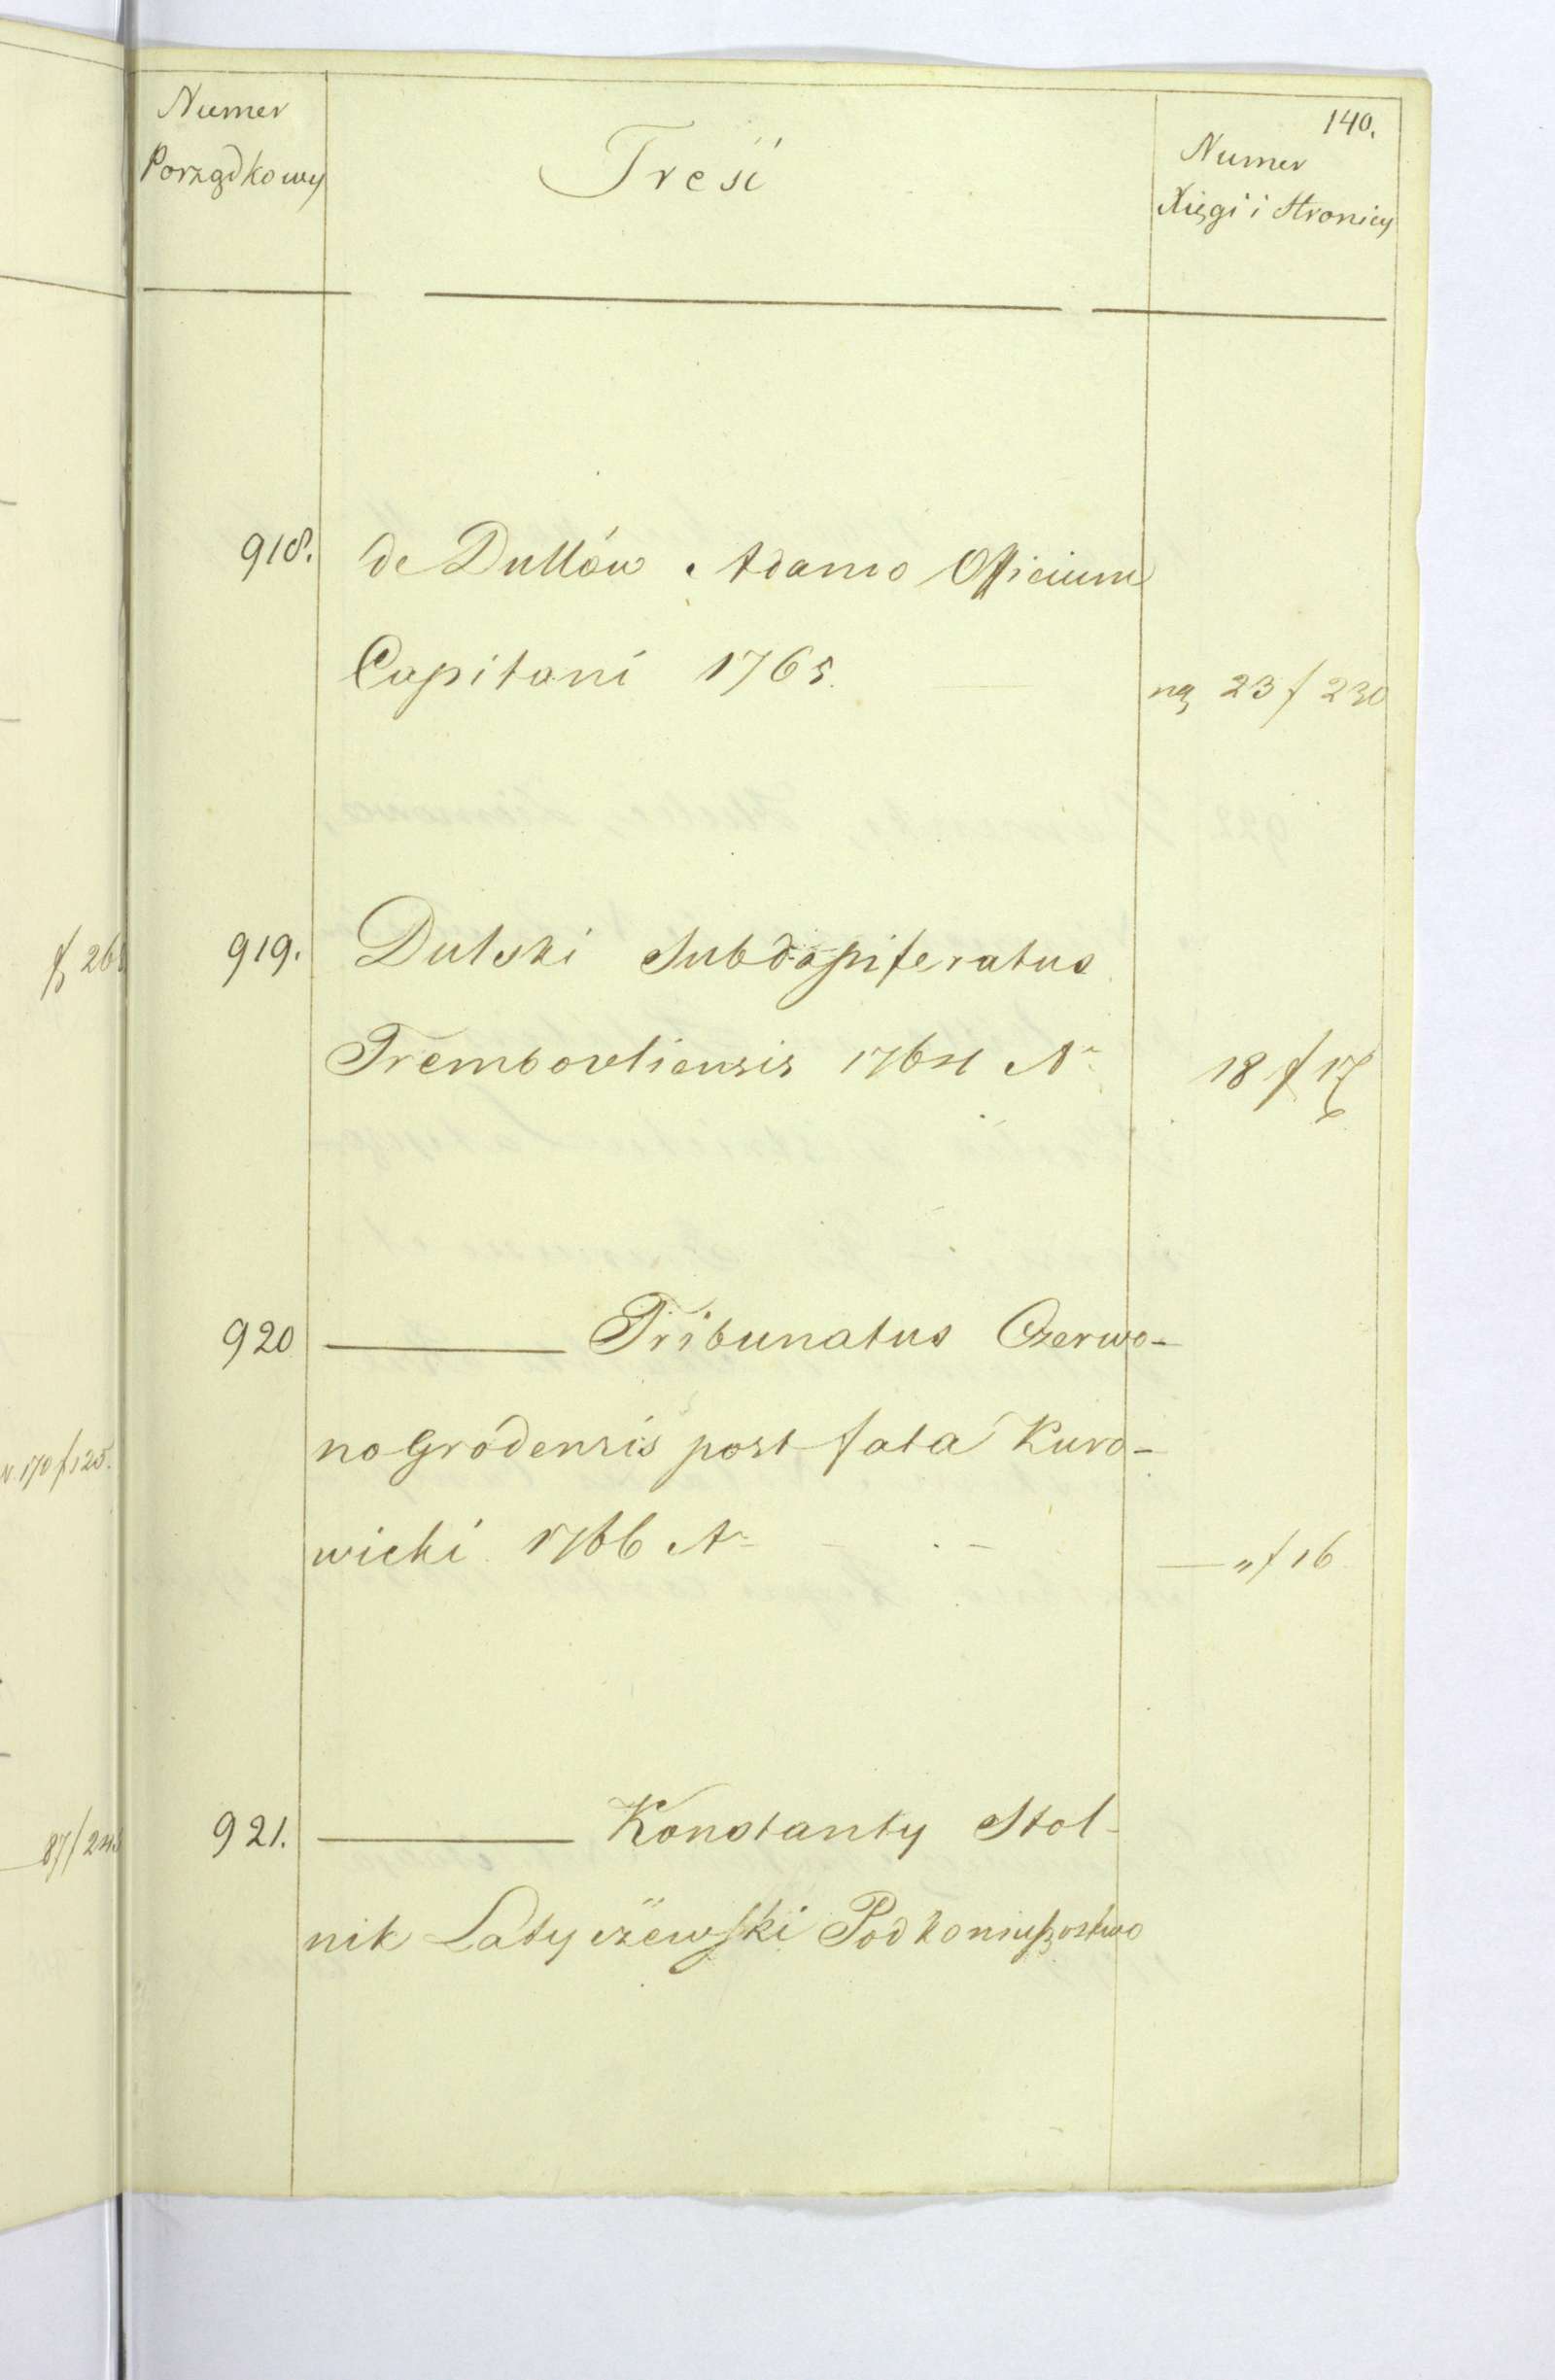 140.
Numer
Porządkowy
Treść
Numer
Xięgi i Stronicy
918. de Dullów Adamo Officium
Capitani 1765. nq 23 f 230
919. Dulski Subdapiferatus
Trembovliensis 1764 Ao 18 f 17
920 ——— Tribunatus Czerwo-
nogrodensis post fata Kuro-
wicki 1766 Ao — „ f 16
921. ——— Konstanty Stol-
nik Latyczewski Podkoniuszostwo
N. 170 f 125.